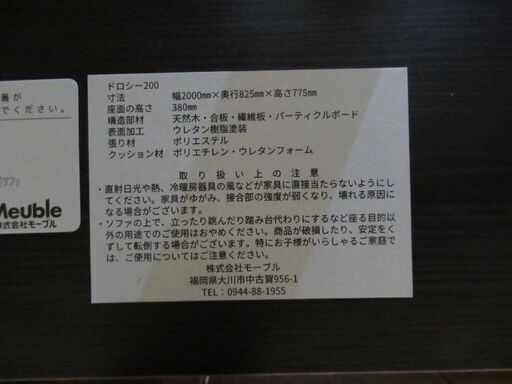 番が
でください。
Meuble
株式会社モーブル
ドロシー200
寸法 幅2000mm×奥行825mm×高さ775mm
座面の高さ 380mm
構造部材 天然木・合板・繊維板・パーティクルボード
表面加工 ウレタン樹脂塗装
張り材 ポリエステル
クッション材 ポリエチレン・ウレタンフォーム
取り扱い上の注意
・直射日光や熱、冷暖房器具の風などが家具に直接当たらないようにし
てください。家具がゆがみ、接合部の強度が弱くなり、壊れる原因になる
場合がございます。
・ソファの上で、立ったり跳んだり踏み台代わりにするなど座る目的以
外の用途でのご使用はおやめください。商品が破損したり、安定をく
ずして転倒する場合がございます。特にお子様がいらしゃるご家庭で
は、ご注意ください。
株式会社モーブル
福岡県大川市中古賀956-1
TEL：0944-88-1955